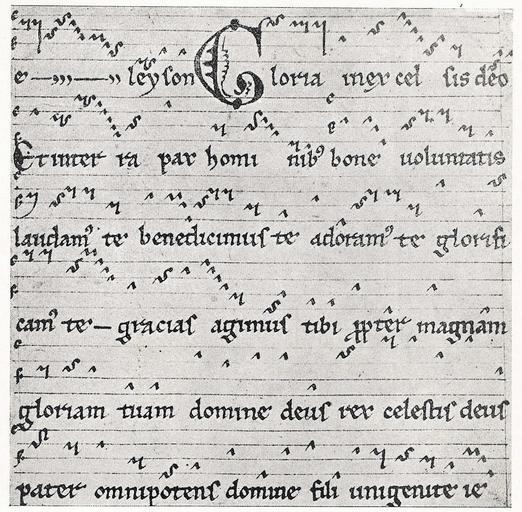 e — — leyson Gloria inexcel sis deo
Et inter ra pax homi nib9 bone uoluntatis
laudam9 te benedicimus te adoram9 te glorifi
cam9 te — gracias agimus tibi ppter magnam
gloriam tuam domine deus rex celestis deus
pater omnipotens domine fili unigenite ie